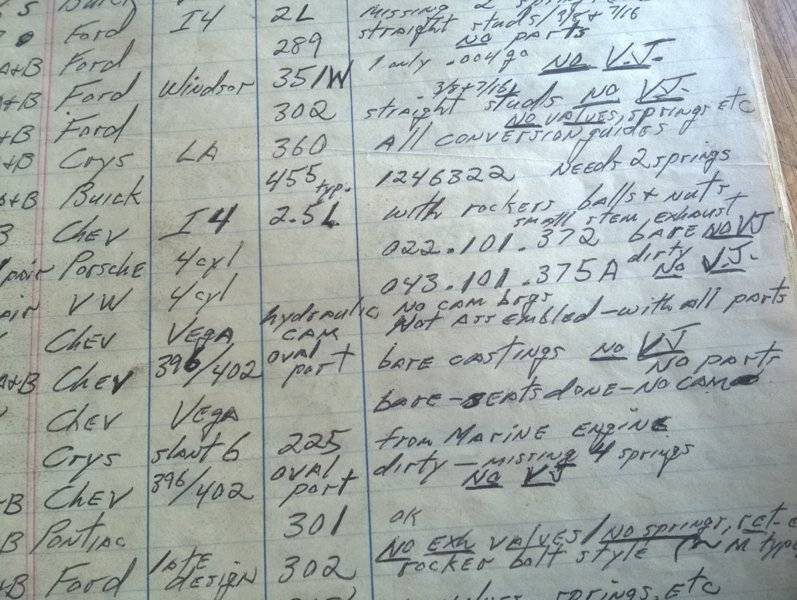 S Buick
Ford I4 2L missing 2
straight studs/3/8 + 7/16
A+B Ford 289 NO parts
1 only .004 go NO V.J.
A+B Ford Windsor 351W 3/8 + 7/16
straight studs NO V.J.
+B Ford 302 NO VALVES, springs etc
+B Crys LA 360 All CONVERSION guides
A+B Buick 455 typ. 1246322 NEEDS 2 springs
B CHEV I4 2.5L with rockers balls + nuts
small stem, exhaust
pair Porsche 4cyl 022.101.372 bare NO VJ
dirty
air VW 4cyl 043.101.375A NO V.J.
CHEV VEGA hydraulic CAM NO CAM brgs
Not Assembled - with all parts
A+B CHEV 396/402 oval port bare castings NO VJ
NO parts
CHEV VEGA bare - SEATS done - NO CAM
Crys slant 6 225 from MARINE ENGINE
-B CHEV 396/402 oval port dirty - missing 4 springs
NO VJ
B Pontiac 301 OK
A+B Ford late design 302 NO Exh VALVES/NO springs, ret-
rocker bolt style (M typ
springs, Etc